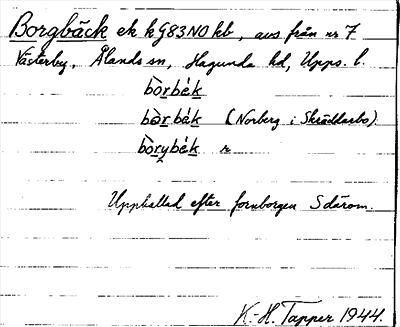 Borgbäck ek kG83NO kb, avs från nr 7
Västerby, Ålands sn, Hagunda hd, Upps. l.
bòrbék
bərbék (Norberg i Skräddarbo)
bòrybék r
Uppkallad efter fornborgen S därom.
K.-H. Tapper 1944.